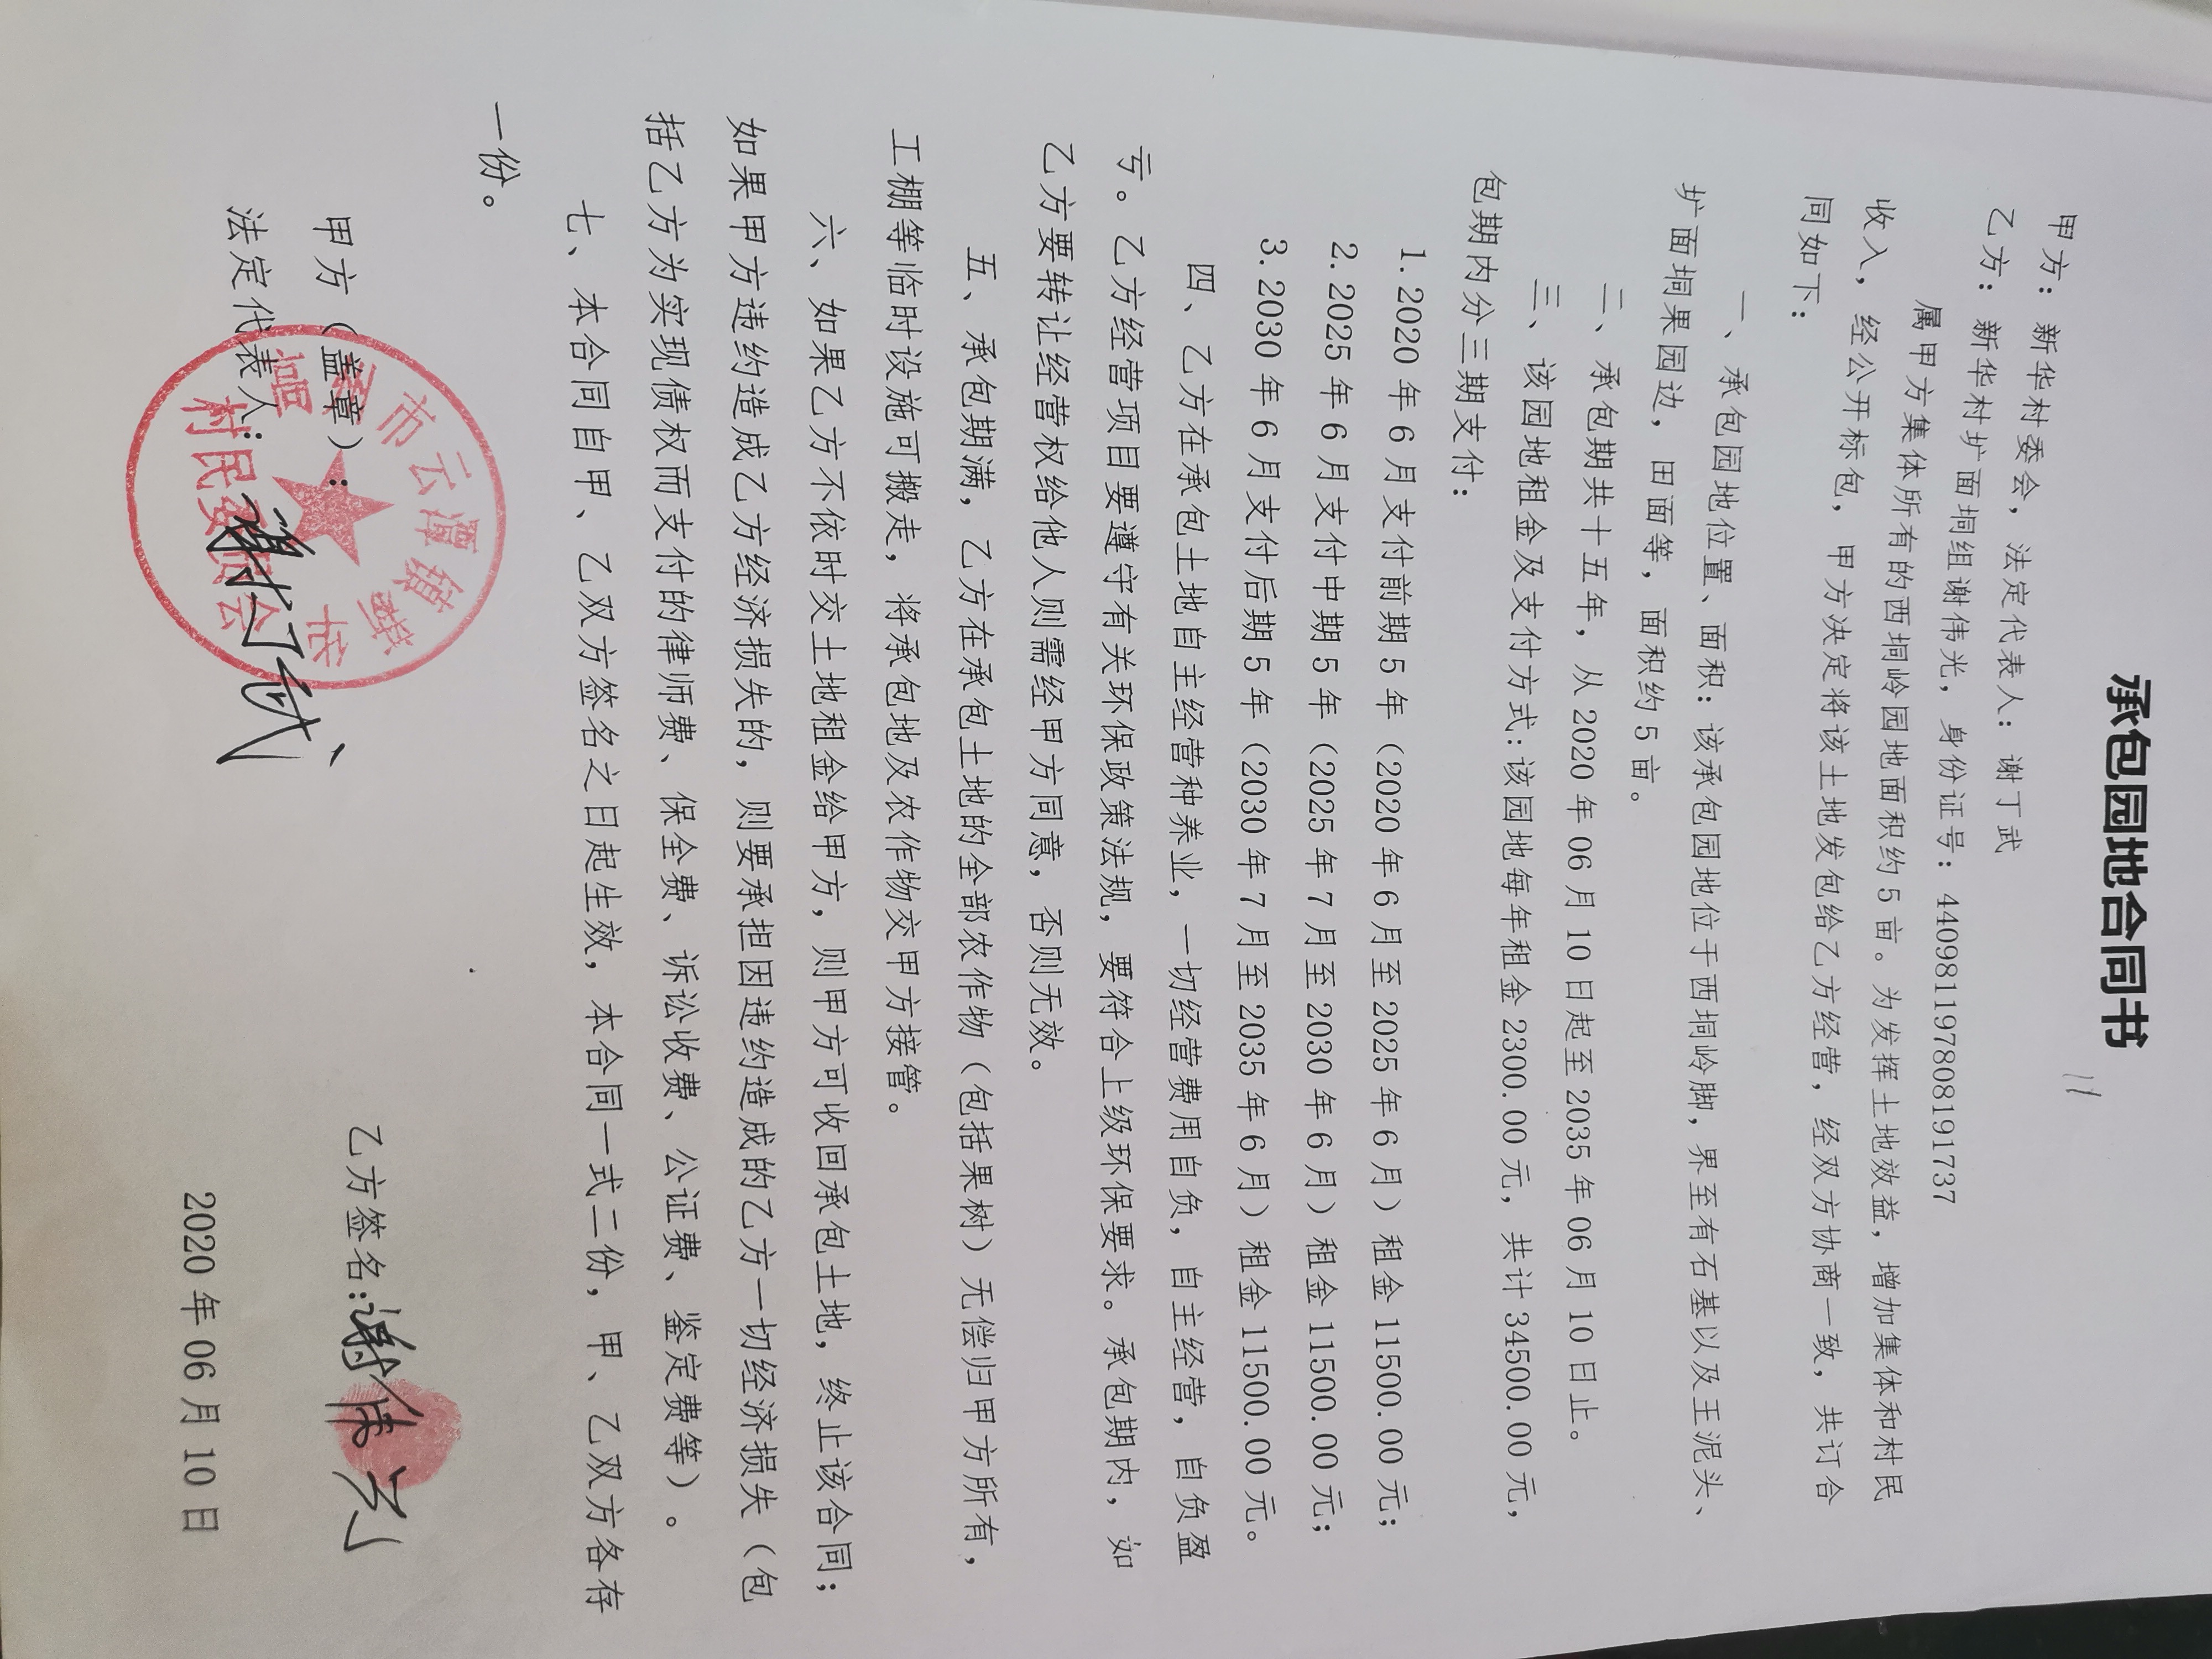 承包园地合同书
甲方：新华村委会，法定代表人：谢丁武
乙方：新华村圹面垌组谢伟光，身份证号：440981197808191737
属甲方集体所有的西垌岭园地面积约5亩。为发挥土地效益，增加集体和村民
收入，经公开标包，甲方决定将该土地发包给乙方经营，经双方协商一致，共订合
同如下：
一、承包园地位置、面积：该承包园地位于西垌岭脚，界至有石基以及王泥头、
圹面垌果园边，田面等，面积约5亩。
二、承包期共十五年，从2020年06月10日起至2035年06月10日止。
三、该园地租金及支付方式:该园地每年租金2300.00元，共计34500.00元，
包期内分三期支付：
1.2020年6月支付前期5年（2020年6月至2025年6月）租金11500.00元；
2.2025年6月支付中期5年（2025年7月至2030年6月）租金11500.00元；
3.2030年6月支付后期5年（2030年7月至2035年6月）租金11500.00元。
四、乙方在承包土地自主经营种养业，一切经营费用自负，自主经营，自负盈
亏。乙方经营项目要遵守有关环保政策法规，要符合上级环保要求。承包期内，如
乙方要转让经营权给他人则需经甲方同意，否则无效。
五、承包期满，乙方在承包土地的全部农作物（包括果树）无偿归甲方所有，
工棚等临时设施可搬走，将承包地及农作物交甲方接管。
六、如果乙方不依时交土地租金给甲方，则甲方可收回承包土地，终止该合同；
如果甲方违约造成乙方经济损失的，则要承担因违约造成的乙方一切经济损失（包
括乙方为实现债权而支付的律师费、保全费、诉讼收费、公证费、鉴定费等）。
七、本合同自甲、乙双方签名之日起生效，本合同一式二份，甲、乙双方各存
一份。
甲方（盖章）：
乙方签名:谢伟光
法定代表人：谢丁武
市云潭镇新华
村民委员会
2020年06月10日